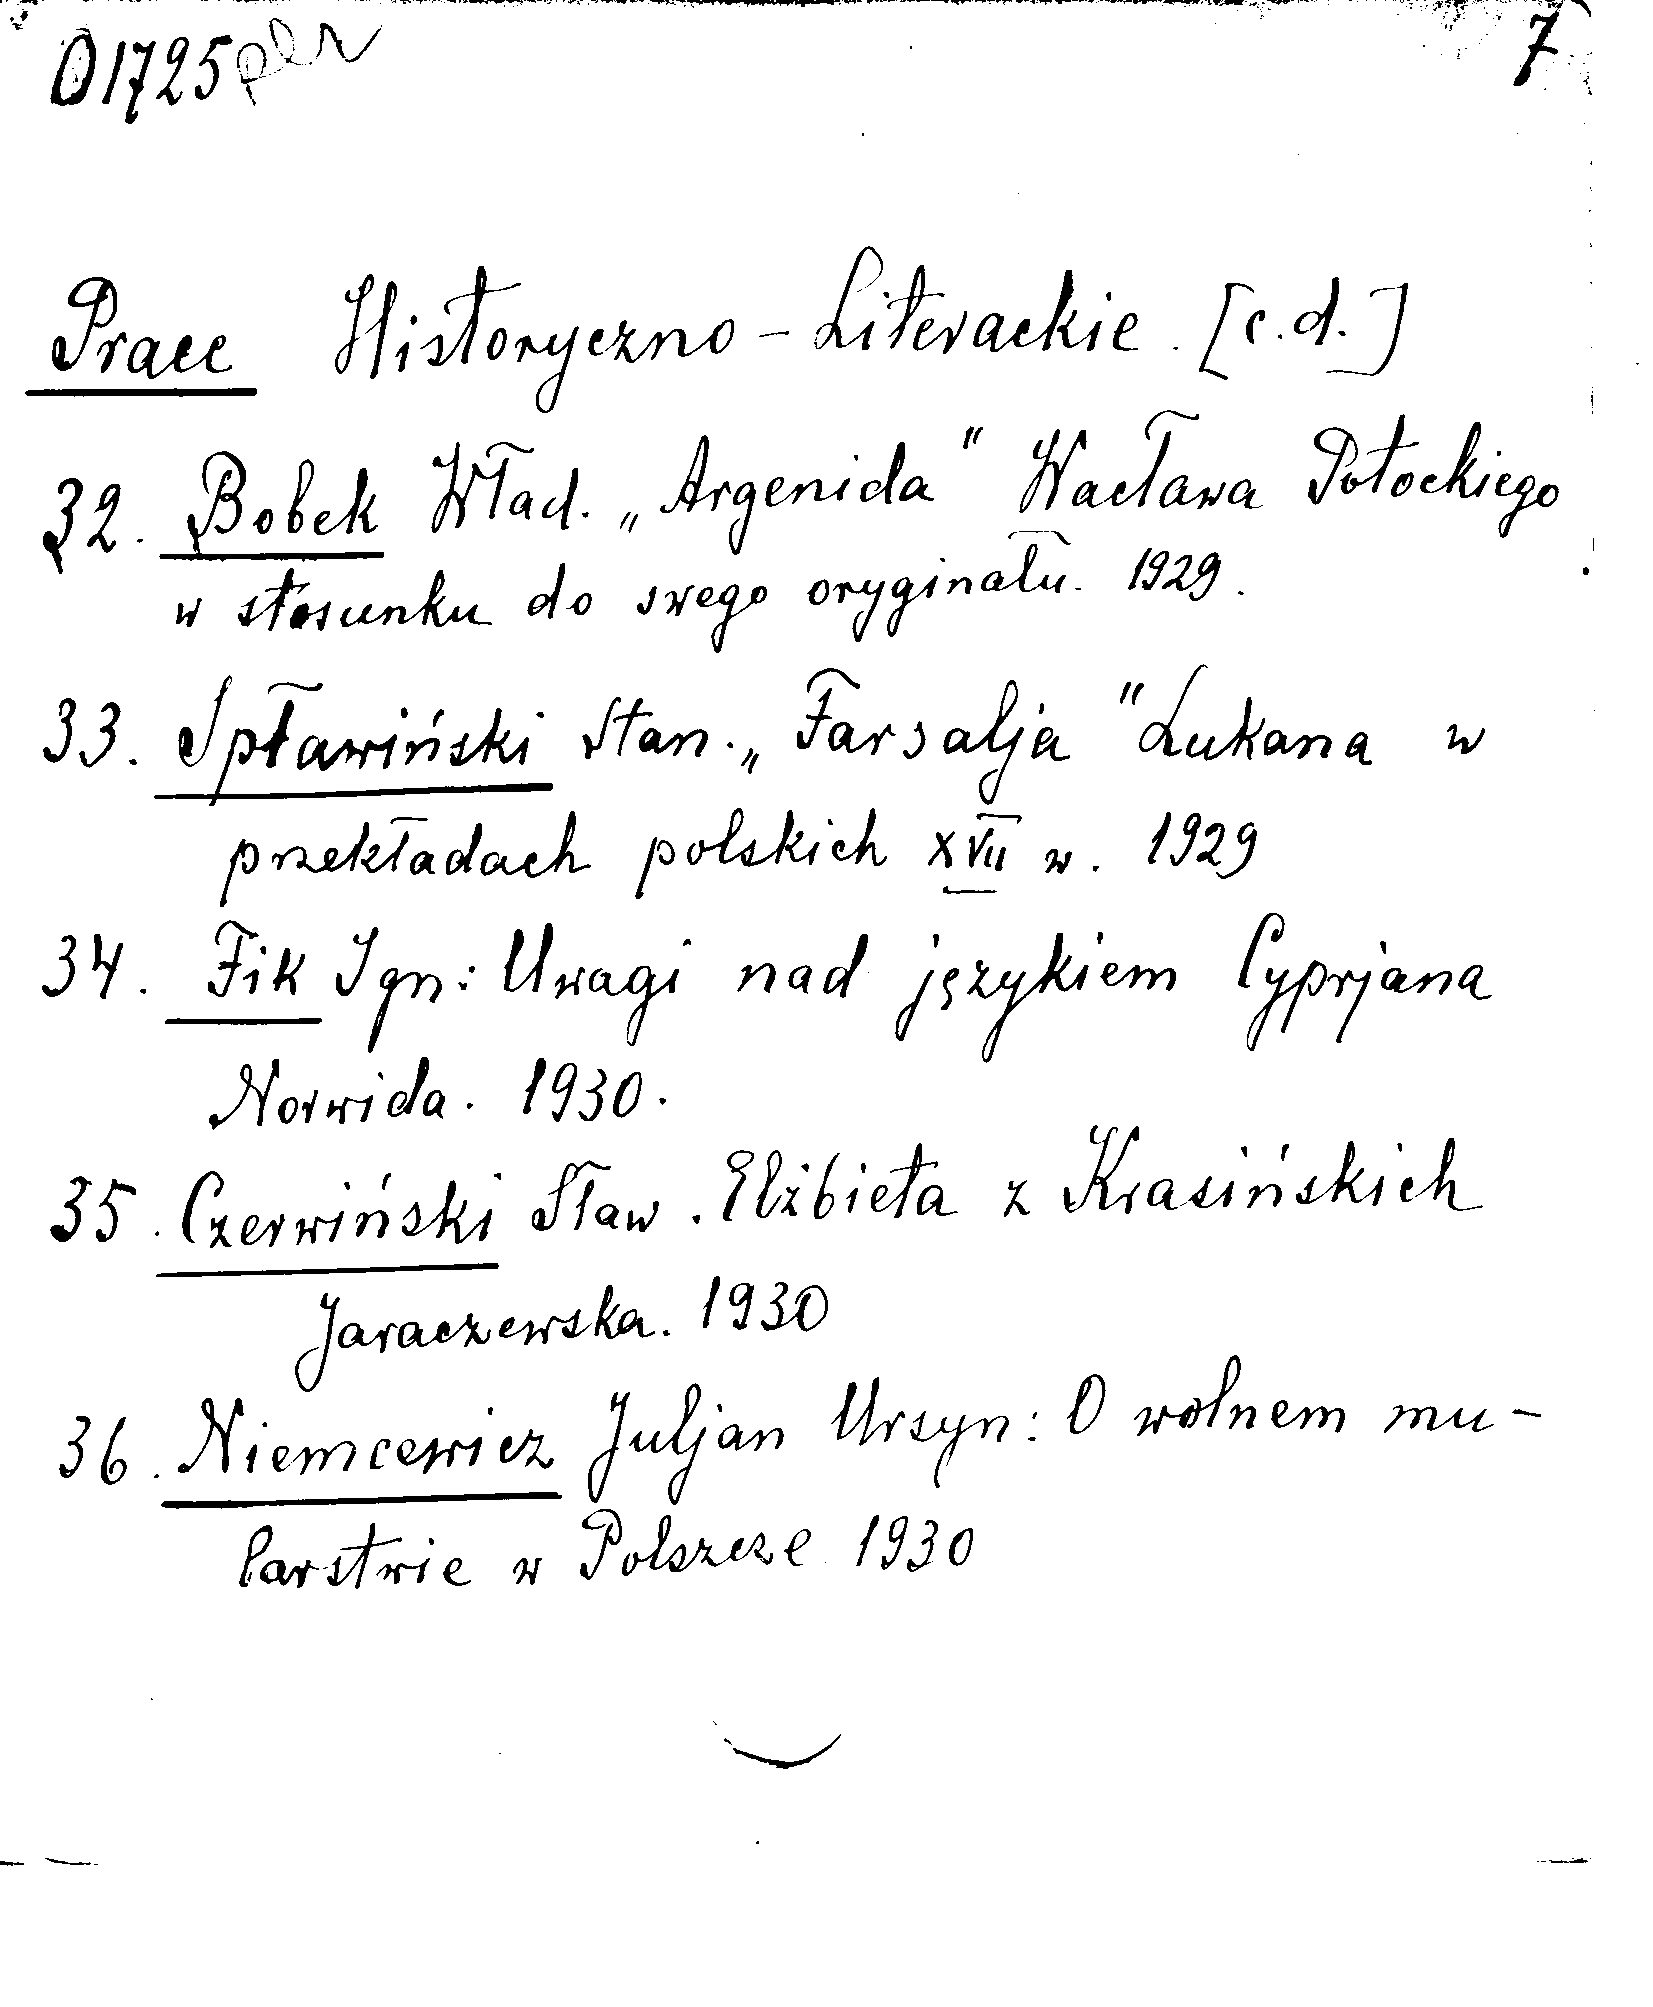 01725 per 7
Prace Historyczno-Literackie. [c.d.]
32. Bobek Wład. „Argenida" Wacława Potockiego
w stosunku do swego oryginału. 1929.
33. Spławiński Stan. „Farsalja" Lukana w
przekładach polskich XVII w. 1929
34. Fik Ign: Uwagi nad językiem Cyprjana
Norwida. 1930.
35. Czerwiński Sław. Elżbieta z Krasińskich
Jaraczewska. 1930
36. Niemcewicz Juljan Ursyn: O wolnem mu-
larstwie w Polszcze 1930